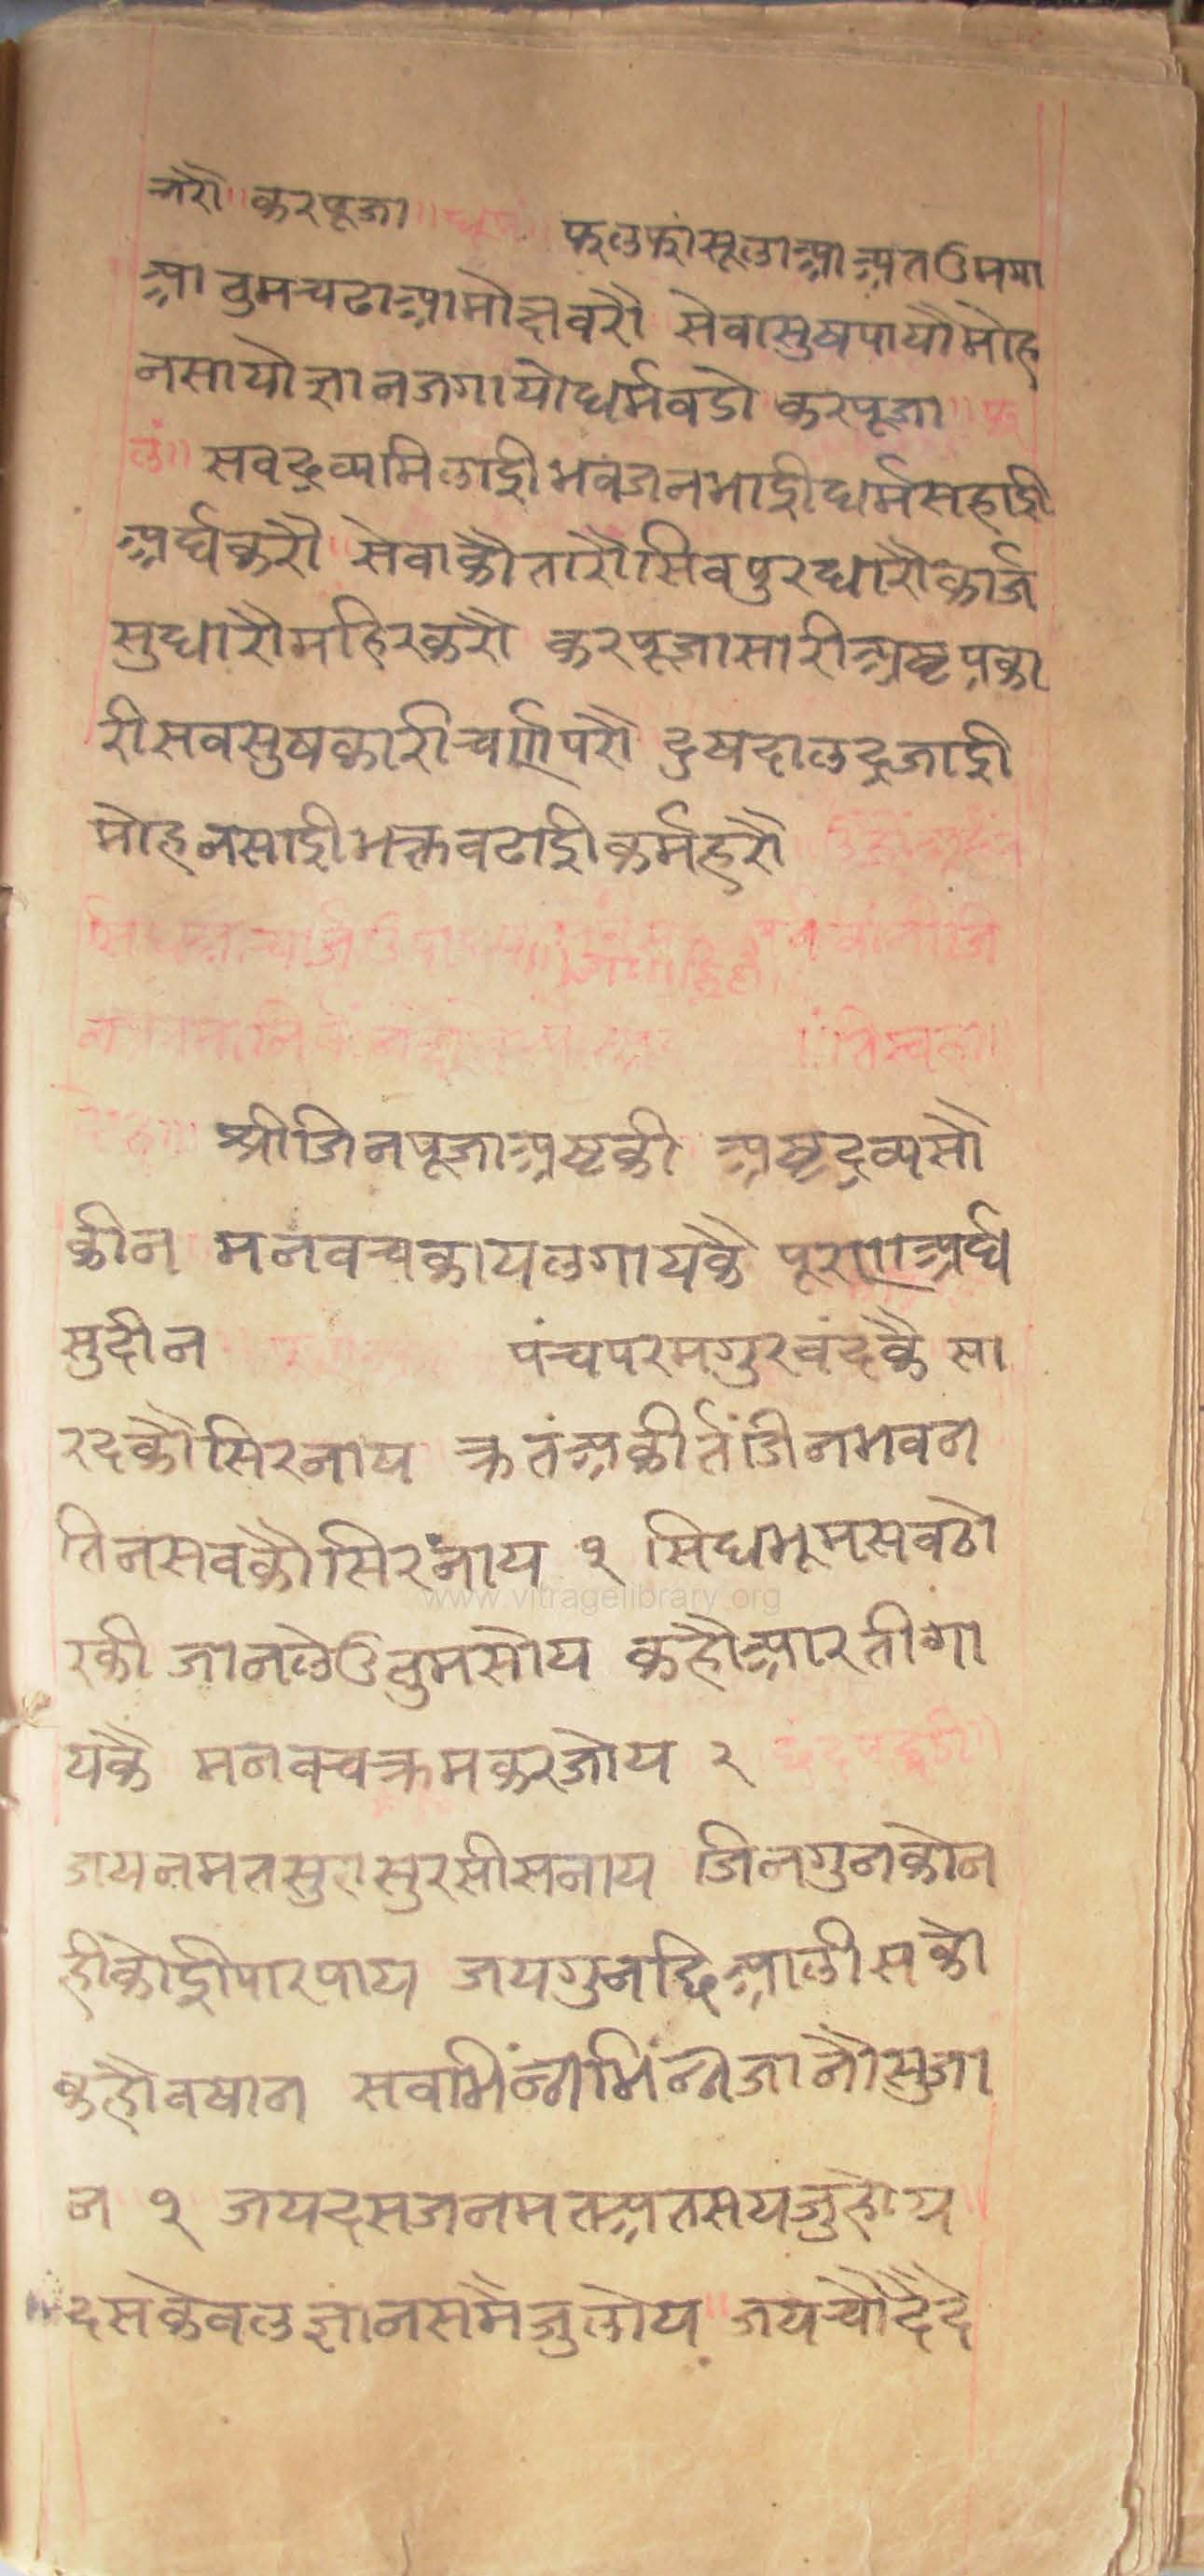 चरौ॥ करपूजा॥ धूपं॥ फलफांसूलाआअतउमगा
आतुमचढाआमोक्षवरौ सेवासुषपायौमोह
नसायोज्ञानजगायोधर्मवडो करपूजा॥ फ
लं॥ सवद्रव्यमिलाईभवजनभाईधर्मसहाई
अर्घकरौ॥ सेवाकौतारौसिवपुरधारौकार्ज
सुधारौमहिरकरौ करपूजासारीअष्टप्रका
रीसवसुषकारीचर्णपरौ दुषदालद्रजाई
मोहनसाईभक्तवढाईकर्महरौ
श्रीजिनपूजाअष्टकी अष्टद्रव्यसौ
कीन मनवचकायलगायकै पूरणअर्घ
सुदीन पंचपरमगुरवंदकै सा
रदकौसिरनाय क्रतंअकीर्तंजिनभवन
तिनसवकौसिरनाय १ सिधभूमसवठो
रकी जानलेउतुमसोय कहौआरतीगा
यकै मनवचक्रमकरजोय २
जयनमतसुरासुरसीसनाय जिनगुनकोन
हीकोईपारपाय जयगुनछिआलीसको
कहौवषान सवभिंन्नभिंन्नजानौसुजा
न १ जयदसजनमतअतसयजुहोय
दसकेवलज्ञानसमैजुलोय॥ जयचौदैदे
www.vitragelibrary.org